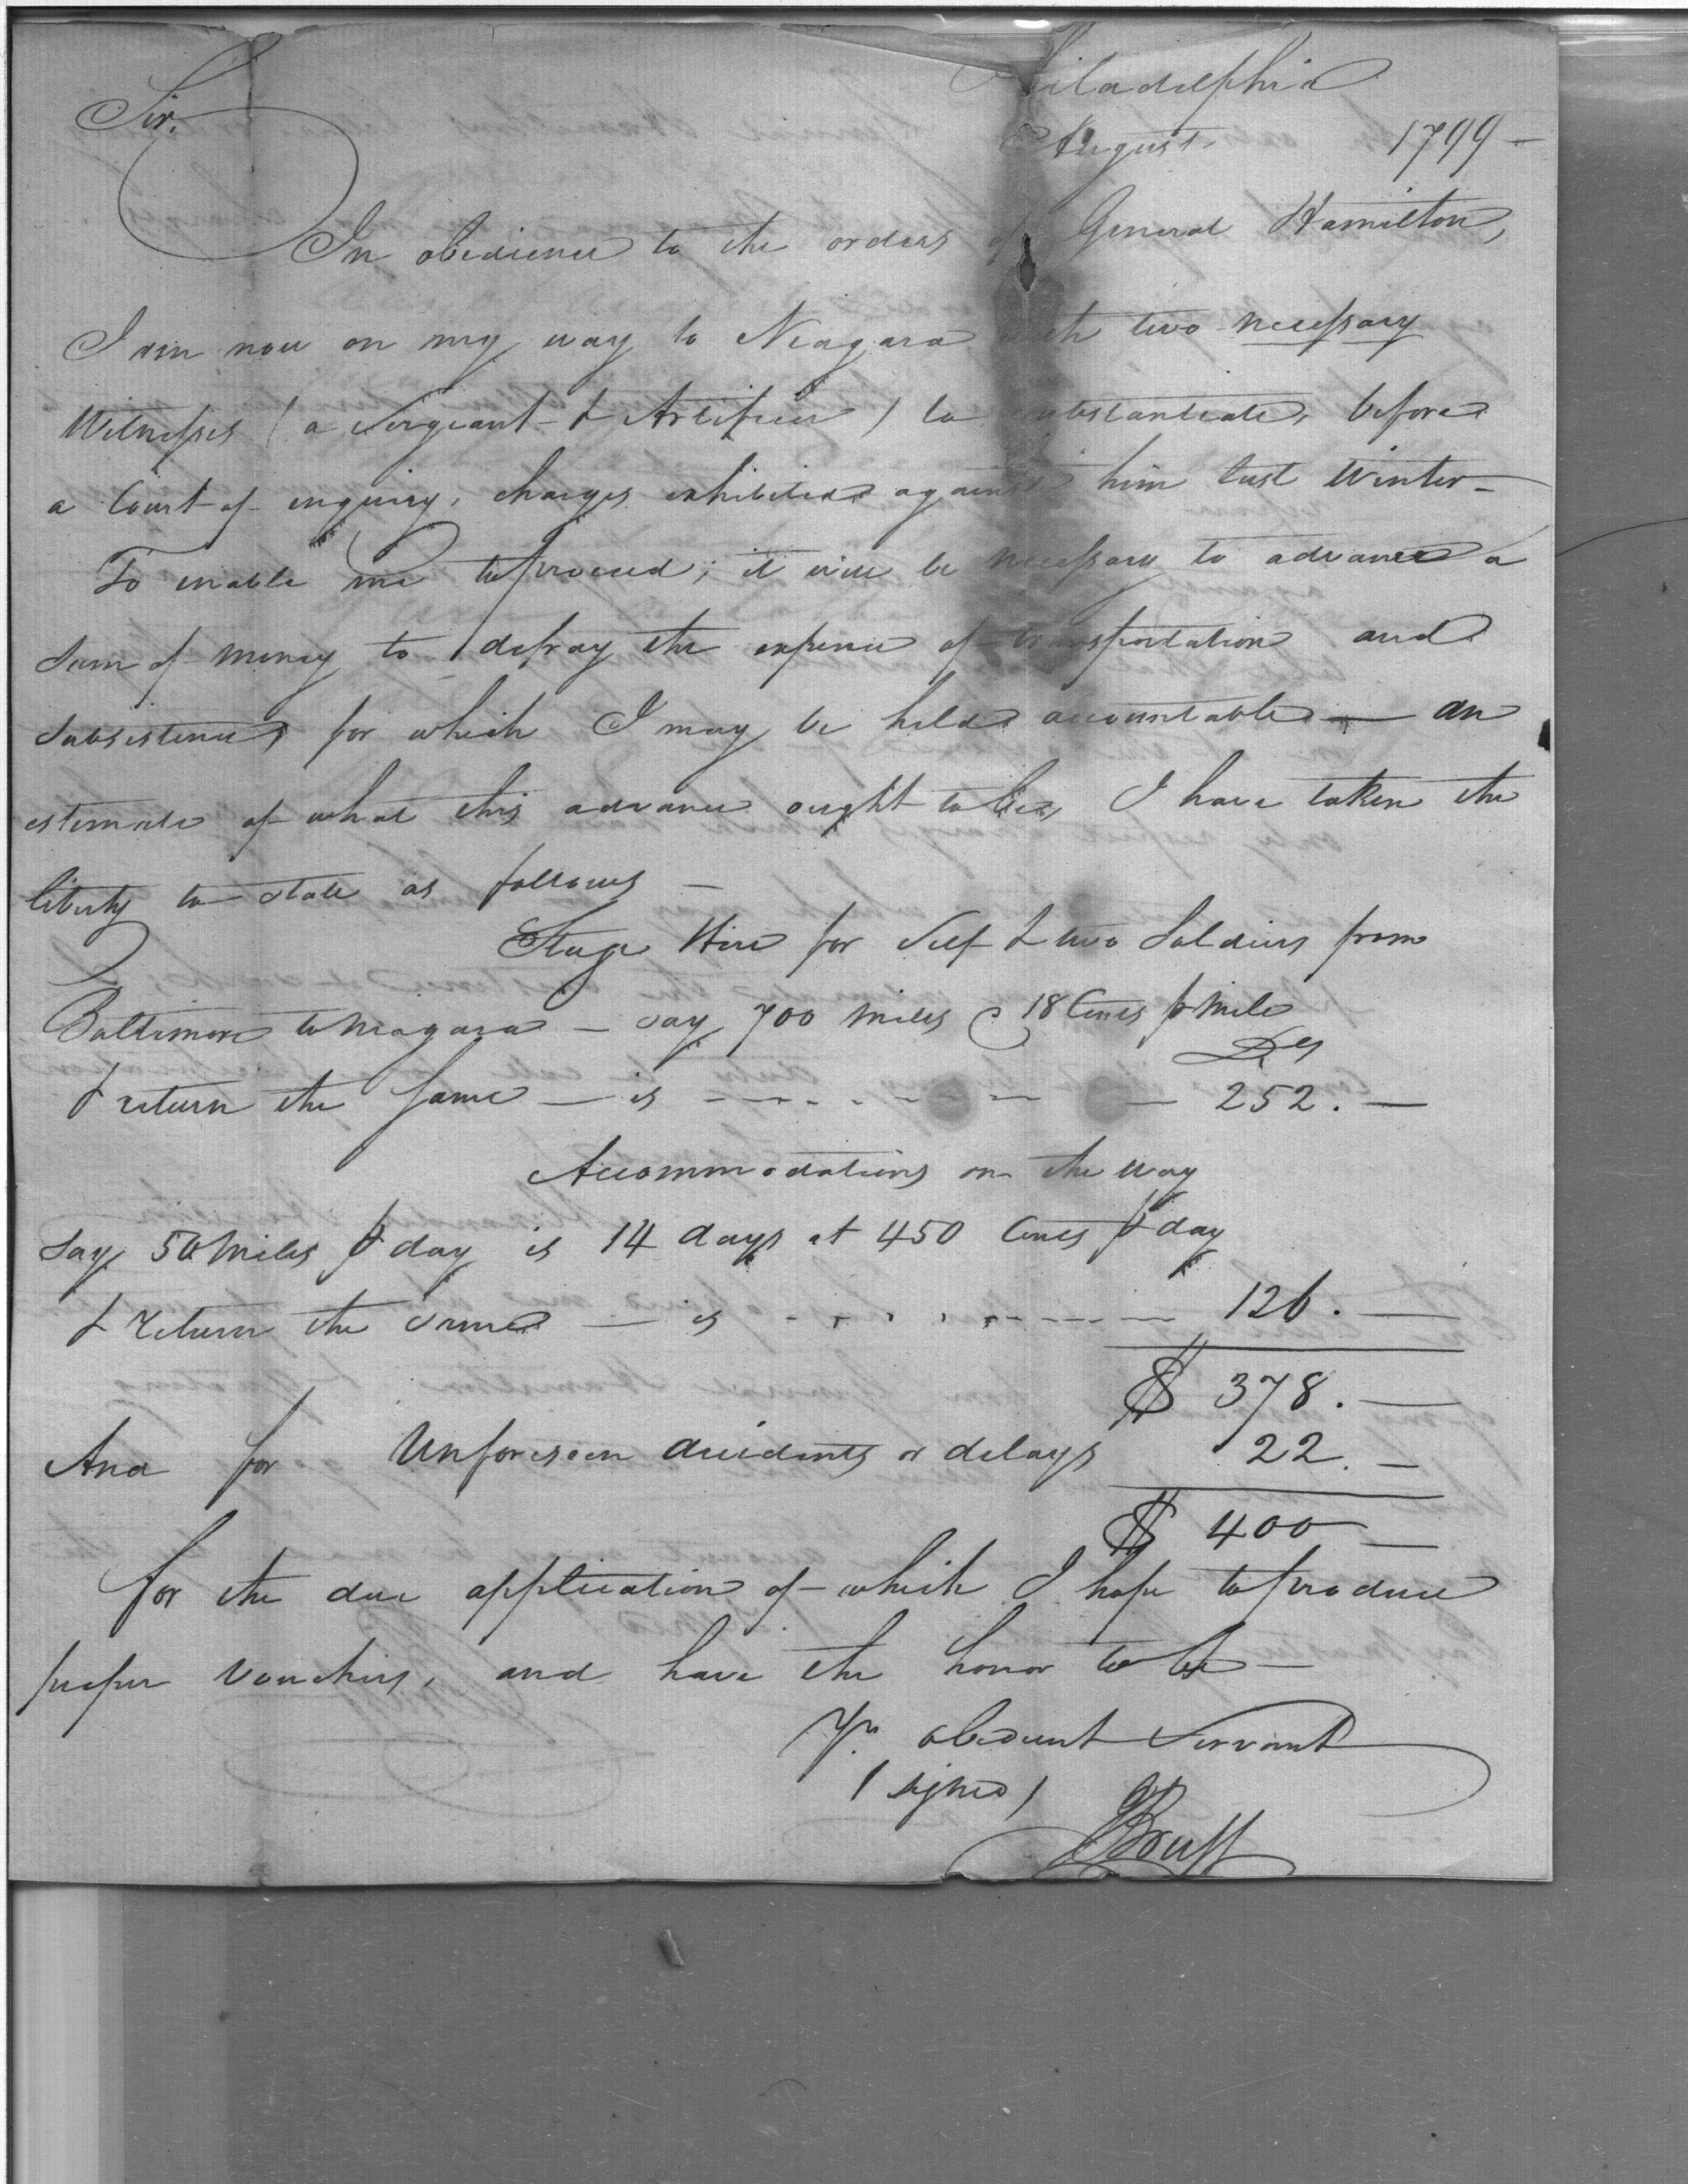 Philadelphia
Sir,
August, 1799 -
In obedience to the orders of General Hamilton,
I am now on my way to Niagara with two necessary
Witnesses ( a Sergeant & Artificer ) to substantiate, before
a Court of enquiry, charges exhibited against him last Winter -
To enable me to proceed; it will be necessary to advance a
sum of money to defray the expence of transportation and
subsistence, for which I may be held accountable — an
estimate of what this advance ought to be, I have taken the
liberty to state as follows —
Stage Hire for Self & two Soldiers from
Baltimore to Niagara — say 700 miles @ 18 Cents ⅌ Mile
& return the same — is - - - - - - - — 252. —
Accommodations on the way
say 50 Miles ⅌ day is 14 days at 450 Cents ⅌ day
& return the same — is - - - - - - - - — 126. —
$ 378. —
And for Unforeseen accidents or delays 22. —
$ 400 —
for the due application of which I hope to produce
proper vouchers, and have the honor to be —
Yr. obedient Servant
( signed )
J Bruff